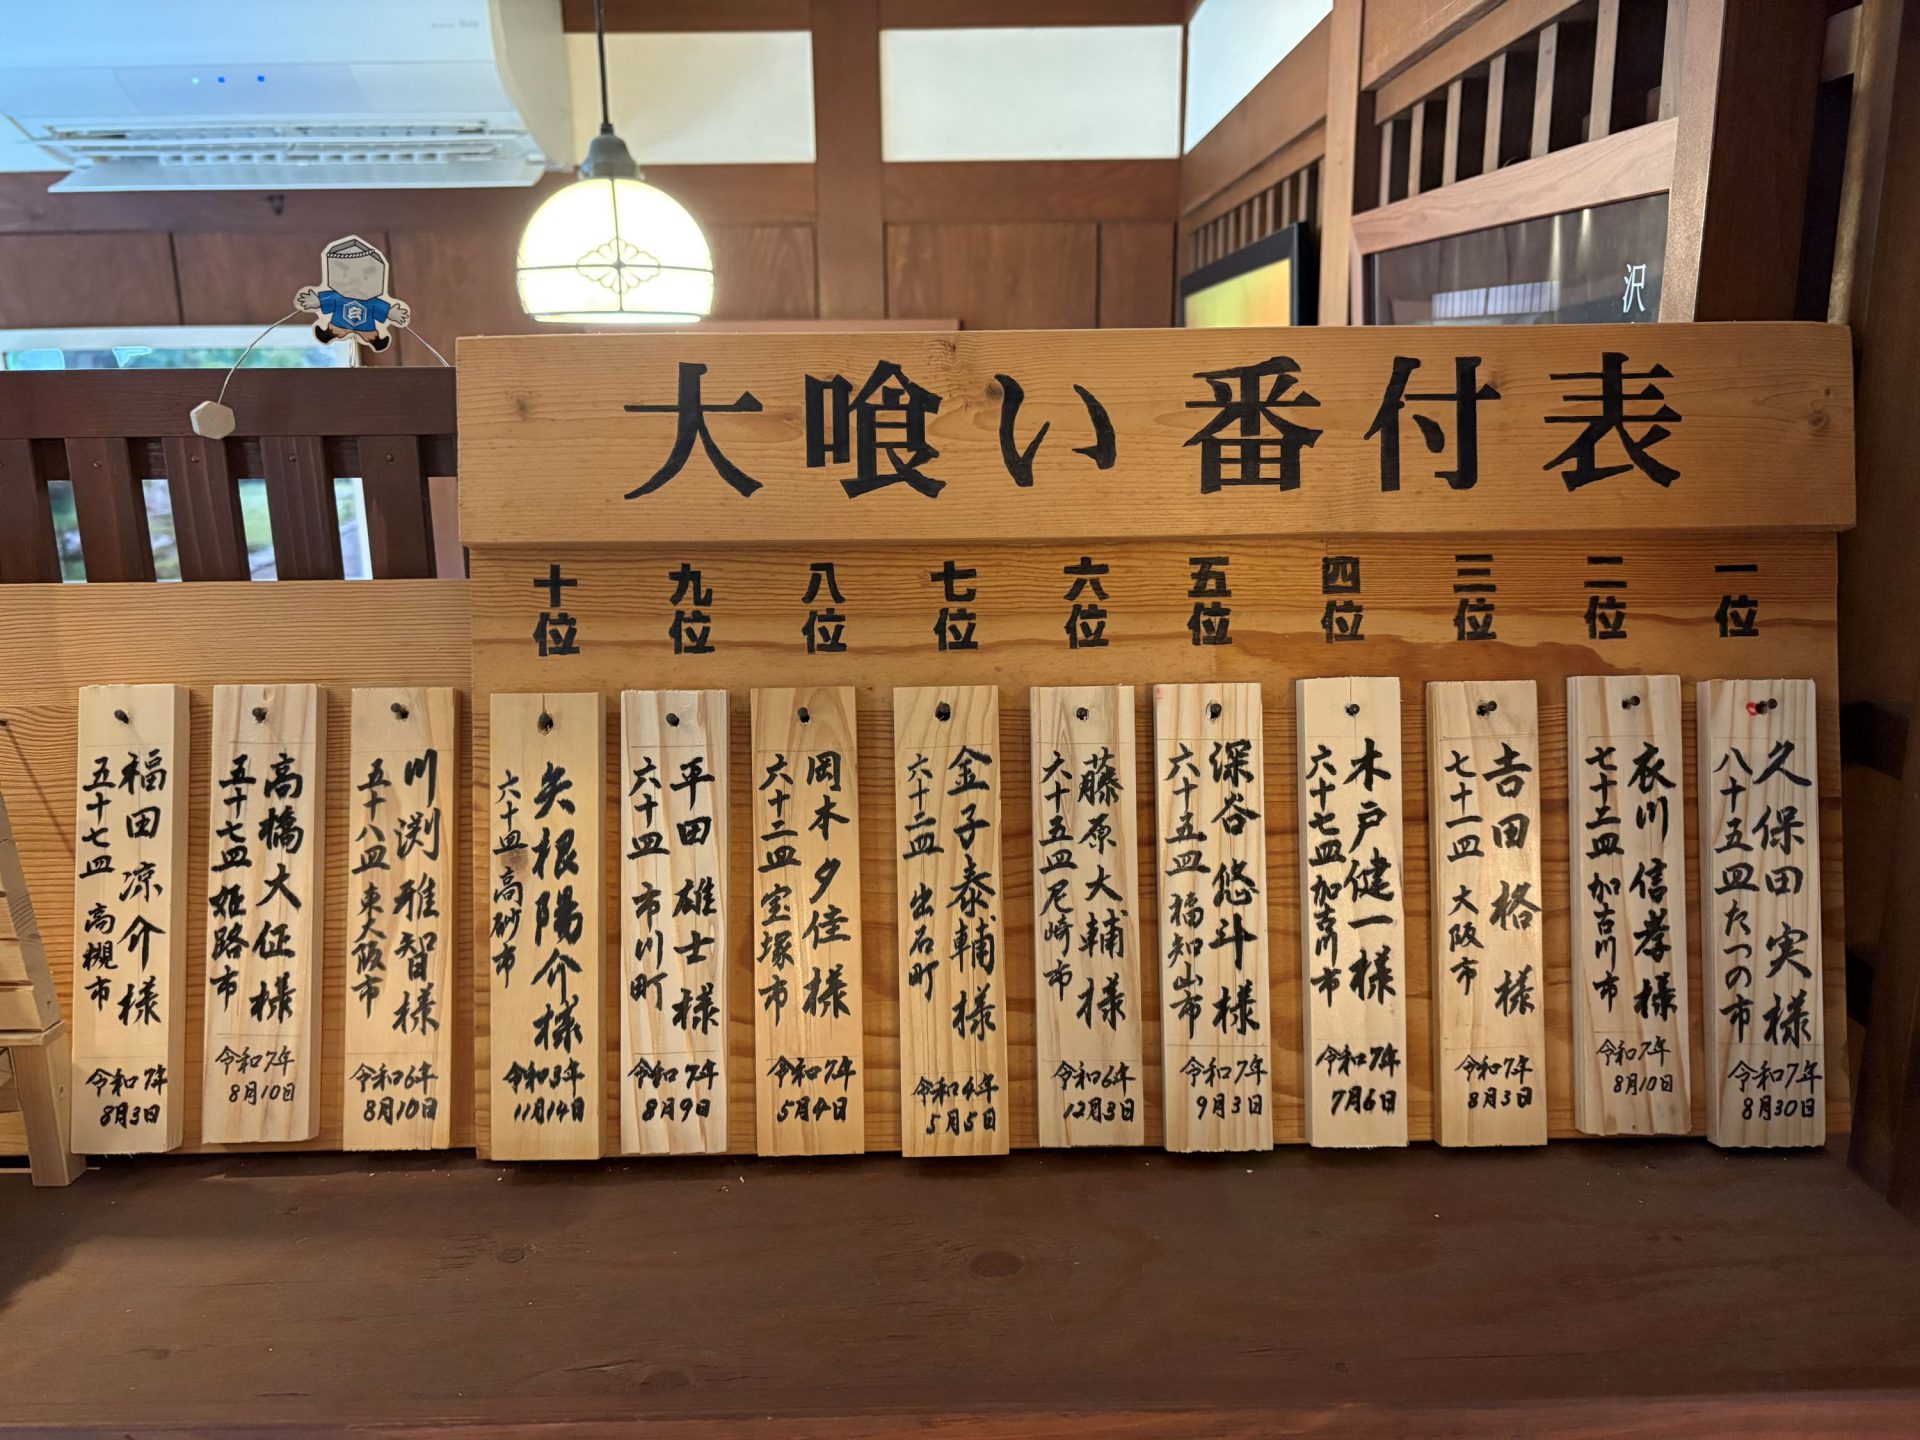 沢
大喰い番付表
一位
二位
三位
四位
五位
六位
七位
八位
九位
十位
久保田実様
八十五皿たつの市
令和7年
8月30日
衣川信孝様
七十三皿加古川市
令和7年
8月10日
吉田格様
七十一皿 大阪市
令和7年
8月3日
木戸健一様
六十七皿加古川市
令和7年
7月6日
深谷悠斗様
六十五皿福知山市
令和7年
9月3日
藤原大輔様
六十五皿尼崎市
令和6年
12月3日
金子泰輔様
六十二皿 出石町
令和4年
5月5日
岡本夕佳様
六十二皿 宝塚市
令和7年
5月4日
平田雄士様
六十皿 市川町
令和7年
8月9日
矢根陽介様
六十皿 高砂市
令和3年
11月14日
川渕雅智様
五十八皿東大阪市
令和6年
8月10日
高橋大征様
五十七皿姫路市
令和7年
8月10日
福田凉介様
五十七皿 高槻市
令和7年
8月3日